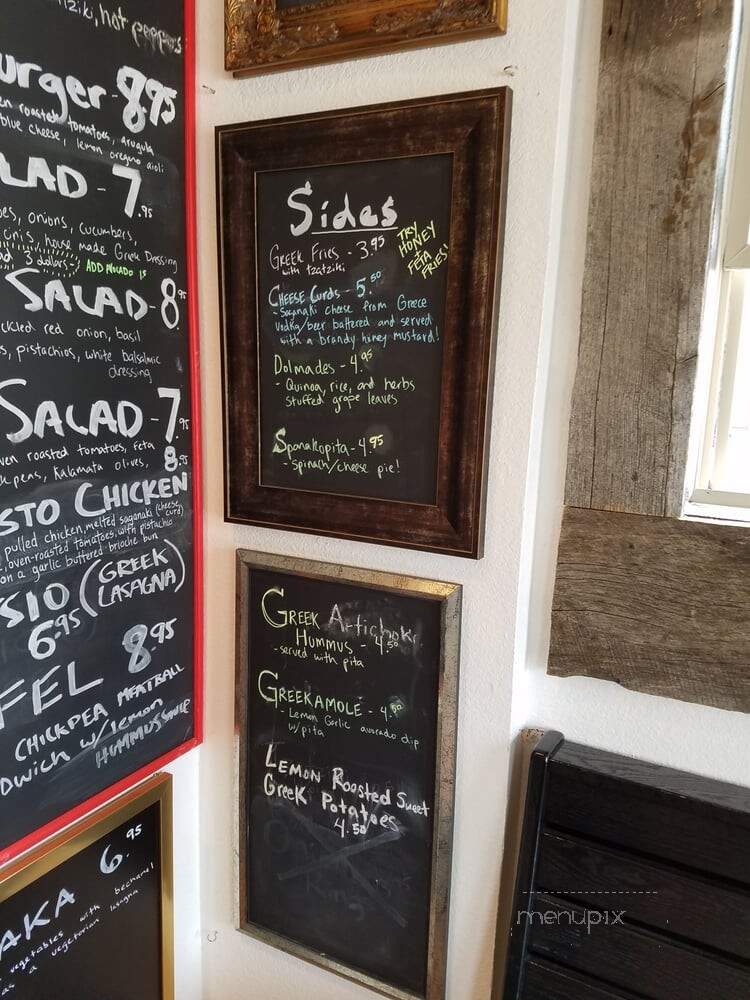 tziki, hot peppers
urger - 8.95
en roasted tomatoes, arugula
blue cheese, lemon oregano aioli
LAD - 7.95
oes, onions, cucumbers,
house made Greek Dressing
ad 3 dollars
ADD AVOCADO 1.5
SALAD - 8
ckled red onion, basil
s, pistachios, white balsalmic
dressing
SALAD - 7.95
ven roasted tomatoes, feta
pens, Kalamata olives, 8.95
STO CHICKEN
pulled chicken, melted saganaki (cheese curd)
, oven-roasted tomatoes, with pistachio
on a garlic buttered brioche bun
SIO (GREEK
LASAGNA)
6.95
FEL 8.95
CHICKPEA MEATBALL
dwich w/ lemon
HUMMUS
AKA 6.95
vegetables with bechamel
as a vegetarian lasagna
Sides
GREEK Fries - 3.95
with tzatziki
TRY
HONEY
+
FETA
FRIES!
CHEESE Curds - 5.50
- Saganaki cheese from Greece
vodka/beer battered and served
with a brandy honey mustard!
Dolmades - 4.95
- Quinoa, rice, and herbs
stuffed grape leaves
Spanakopita - 4.95
- spinach/cheese pie!
GREEK Artichoke
HUMMUS - 4.50
- served with pita
GREEKAMOLE - 4.50
- Lemon Garlic avocado dip
w/pita
LEMON Roasted Sweet
GreeK Potatoes
4.50
menupix